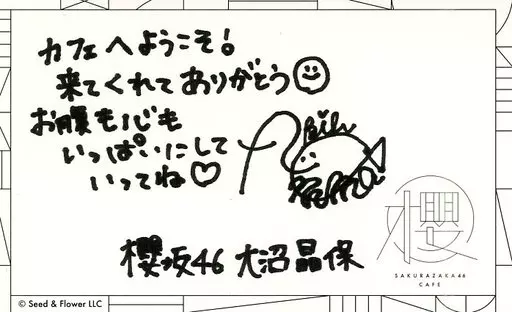 カフェへようこそ!
来てくれてありがとう
お腹も心も
いっぱいにして
いってね♡
櫻坂46 大沼晶保
櫻
SAKURAZAKA46
CAFE
© Seed & Flower LLC